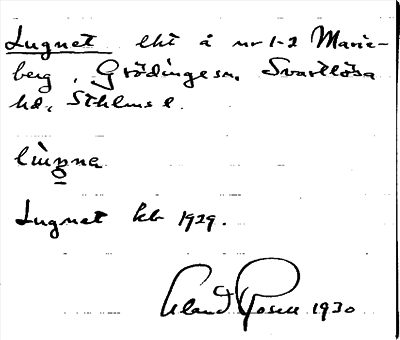 Lugnet lht å nr 1-2 Marie-
berg, Grödinge sn, Svartlösa
hd, Sthlms l.
Lugnet kb 1929.
Cland Rosell 1930